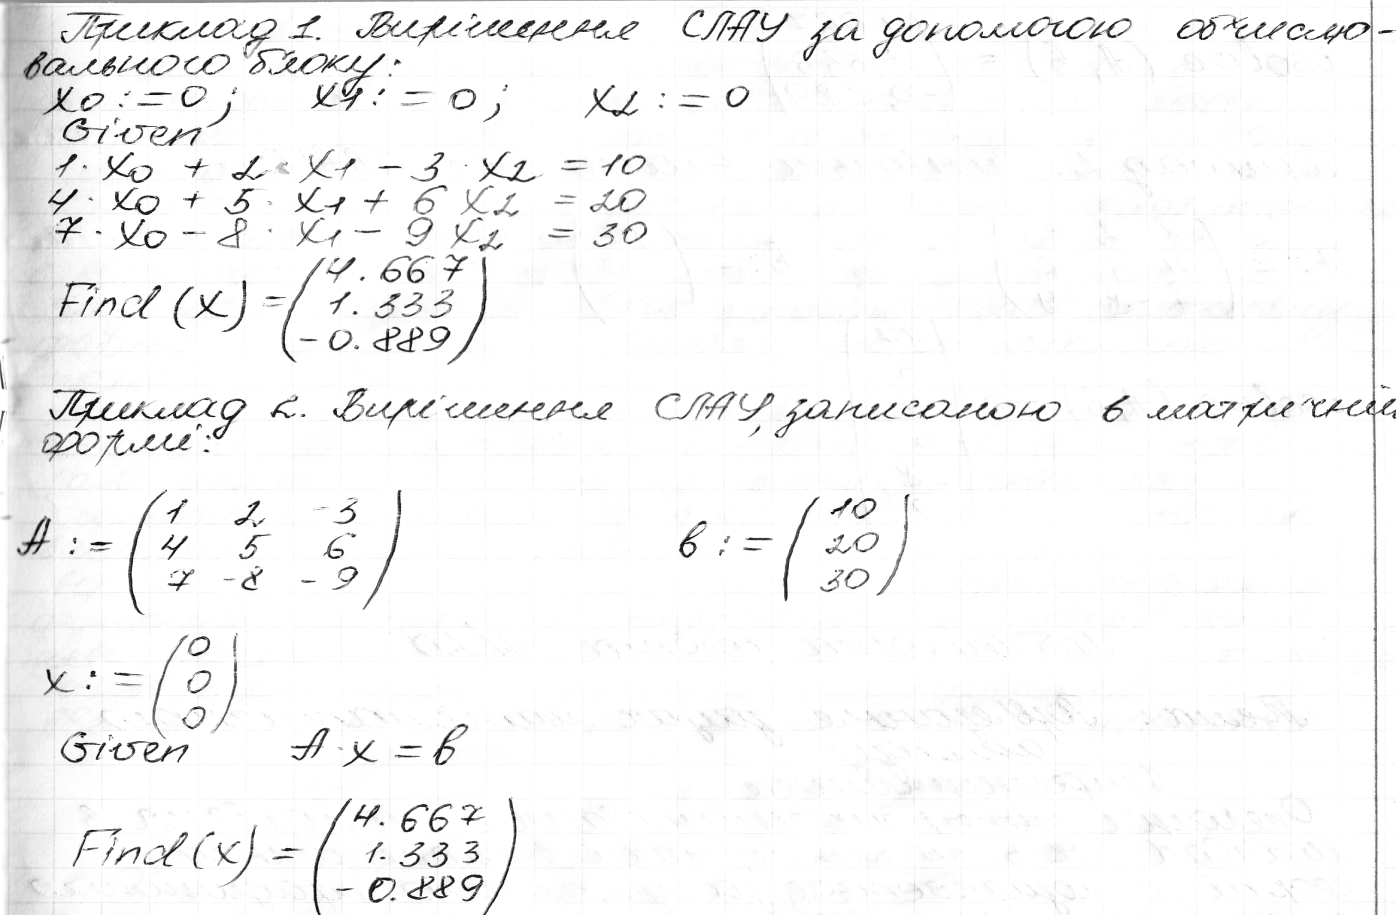 Приклад 1. Вирішення СЛАУ за допомогою обчислю-
вального блоку:
x0 := 0; x1 := 0; x2 := 0
Given
1 · x0 + 2 · x1 - 3 · x2 = 10
4 · x0 + 5 · x1 + 6 x2 = 20
7 · x0 - 8 · x1 - 9 x2 = 30
Find (x) = (4.667
1.333
-0.889)
Приклад 2. Вирішення СЛАУ, записаною в матричній
формі:
A := (1 2 -3
4 5 6
7 -8 -9)
в := (10
20
30)
x := (0
0
0)
Given A · x = в
Find (x) = (4.667
1.333
-0.889)